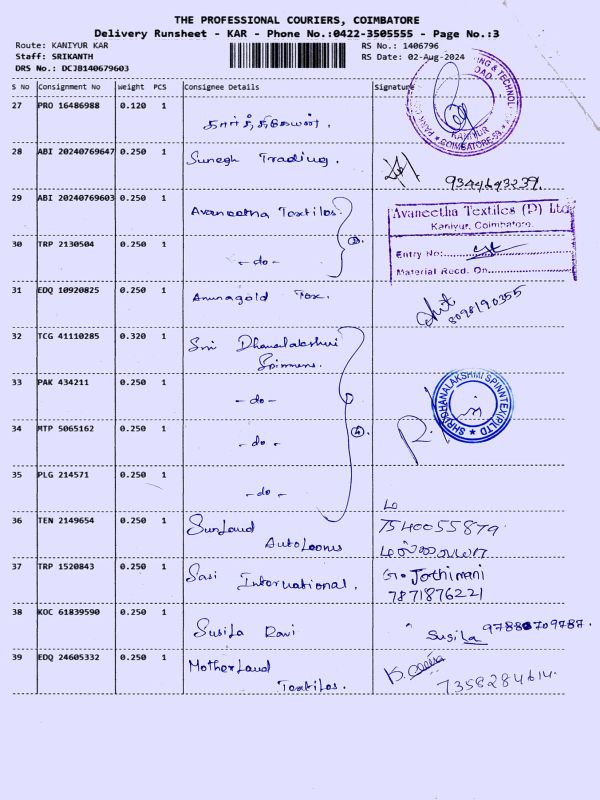 THE PROFESSIONAL COURIERS, COIMBATORE
Delivery Runsheet - KAR - Phone No.:0422-3505555 - Page No.:3
Route: KANIYUR KAR
RS No.: 1406796
Staff: SRIKANTH
RS Date: 02-Aug-2024
DRS No.: DCJB140679603
S No Consignment No Weight PCS Consignee Details Signature
27 PRO 16486988 0.120 1
KANIYUR
COIMBATORE-59
28 ABI 20240769647 0.250 1 Sunegh Trading.
9344643239.
29 ABI 20240769603 0.250 1 Avaneetha Textiles
Avaneetha Textiles (P) Ltd
Kaniyur, Coimbatore.
Entry No:
Material Recd. On
30 TRP 2130504 0.250 1 - do - (2).
31 EDQ 10920825 0.250 1 Arunagold Tex.
8098190355
32 TCG 41110285 0.320 1 Sri Dhanalakshmi
Spinners.
33 PAK 434211 0.250 1 - do -
SHRI DHANALAKSHMI SPINNTEX (P) LTD
34 MTP 5065162 0.250 1 - do - (4).
35 PLG 214571 0.250 1 - do -
36 TEN 2149654 0.250 1 SunLand 7540055879.
AutoLooms
37 TRP 1520843 0.250 1 Sasi International. G. Jothimani
7871876221
38 KOC 61839590 0.250 1 Susila Ravi Susila 9788709787.
39 EDQ 24605332 0.250 1 MotherLand
Textiles. 7358284614.